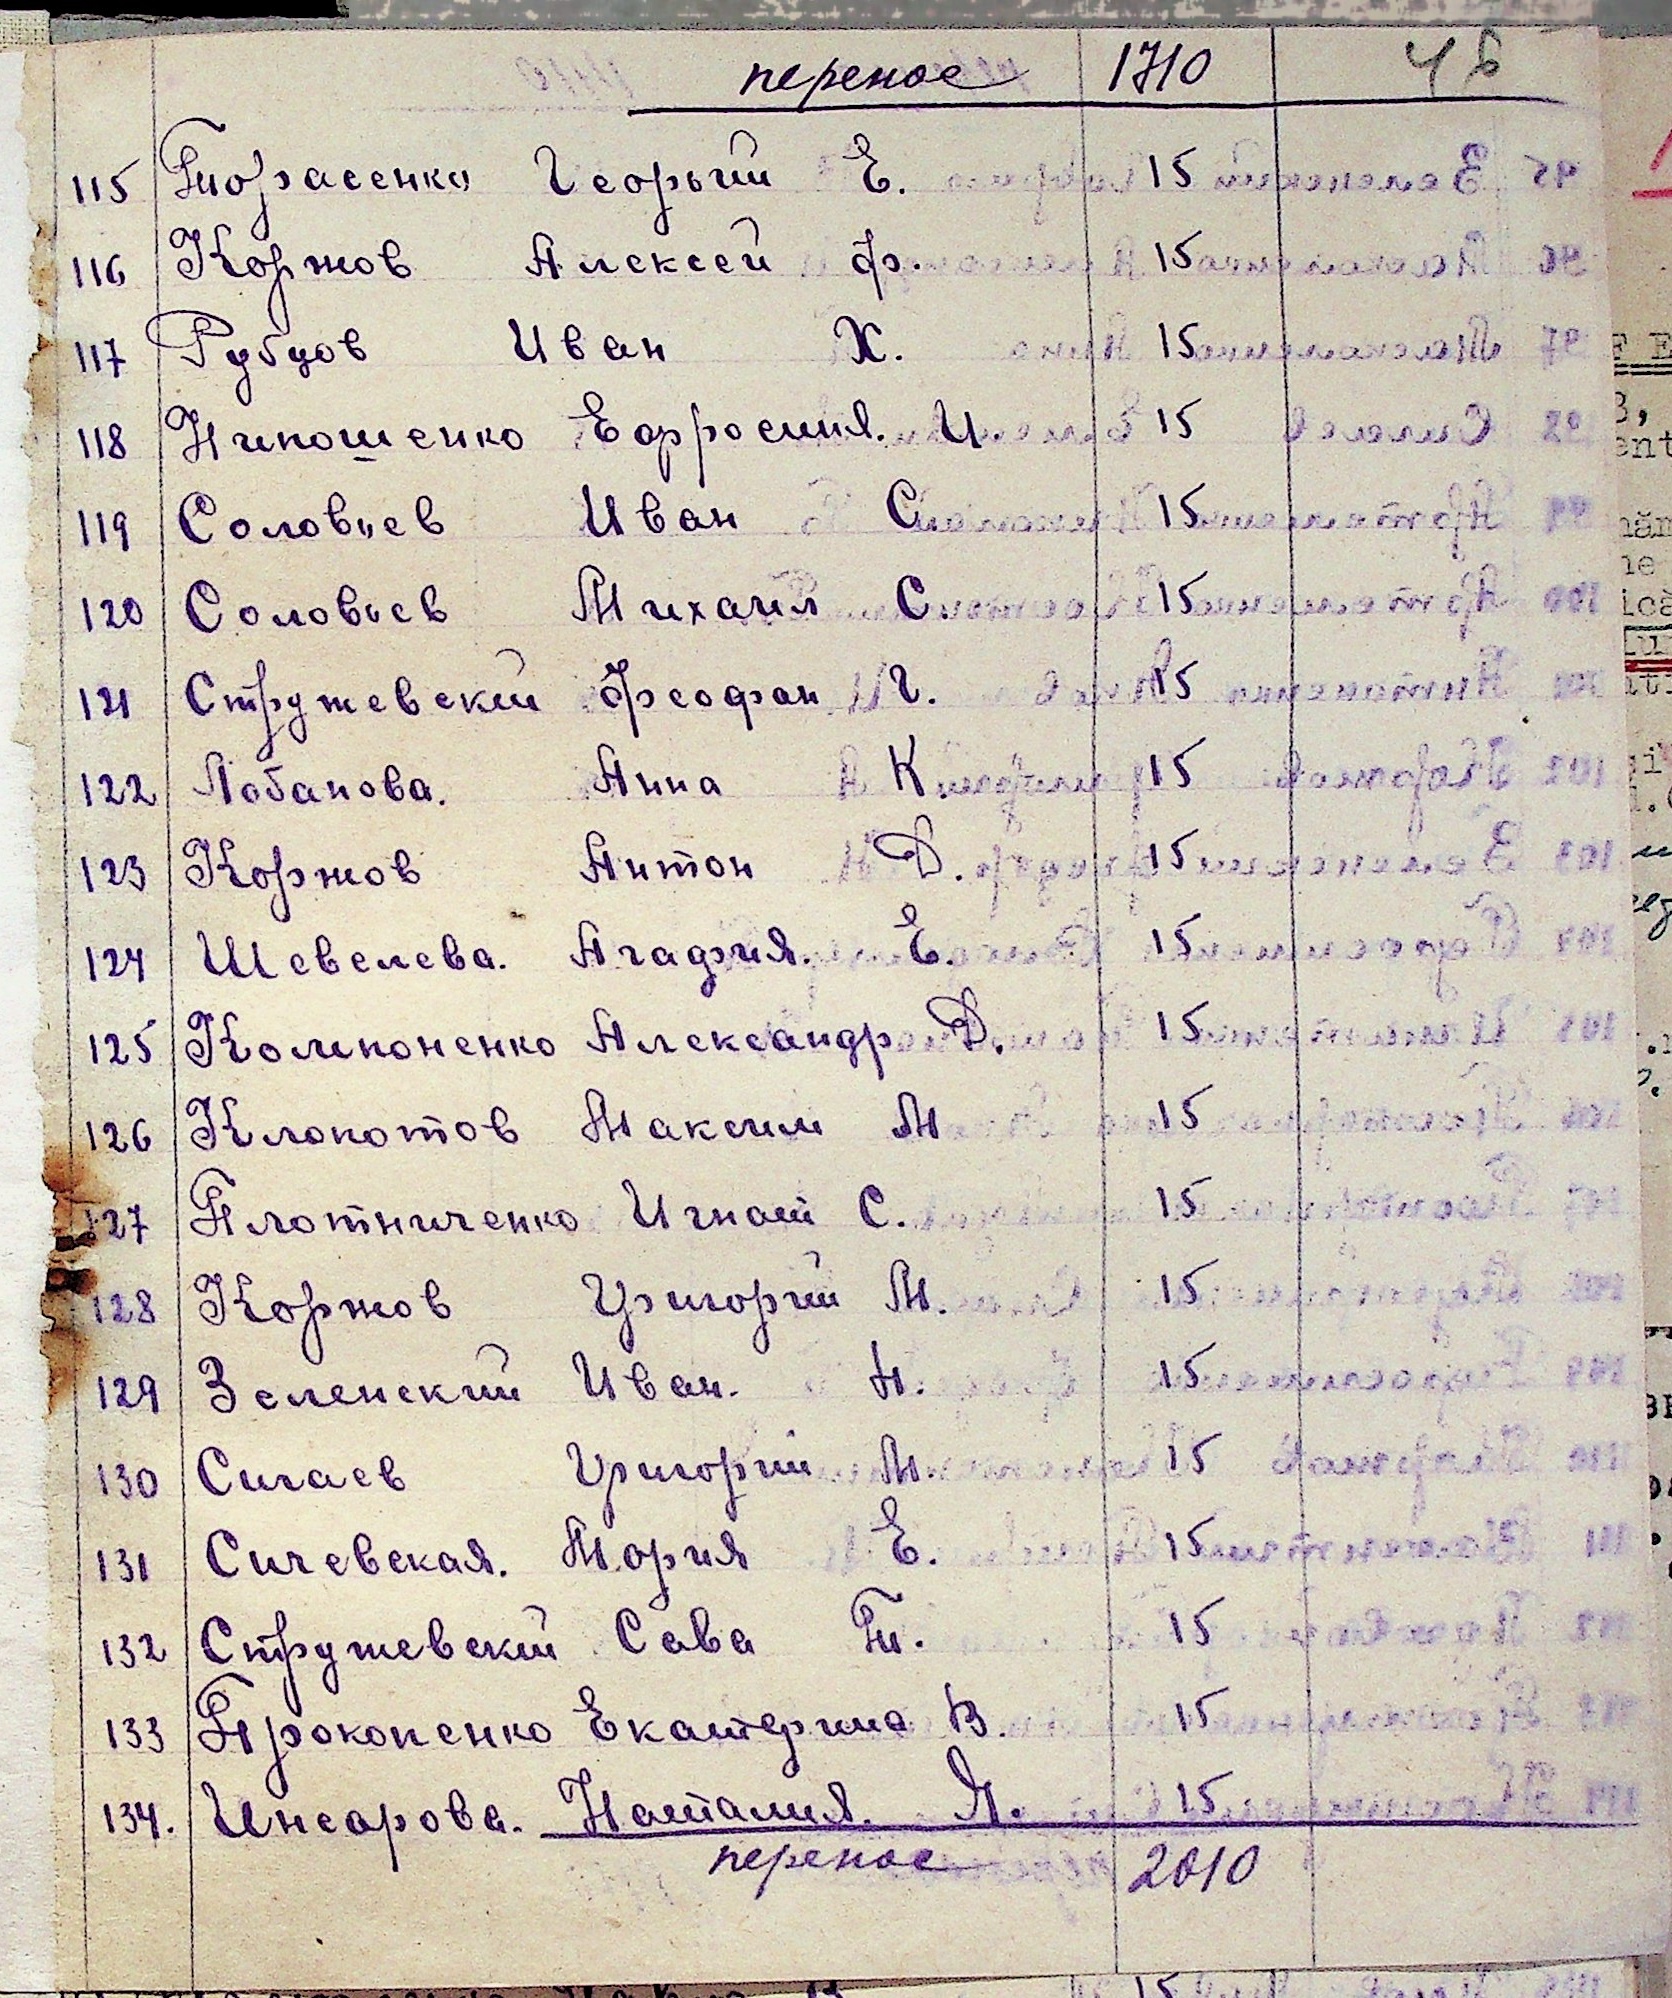 перенос 1710 46
115 Тиорасенко Георьгий Е. 15
116 Коржов Алексей Ф. 15
117 Рубцов Иван Х. 15
118 Нипошенко Ефросиния. И 15
119 Соловьев Иван С. 15
120 Соловьев Михаил С. 15
121 Стружевский Феофан Г. 15
122 Лобанова. Анна К. 15
123 Коржов Антон Д. 15
124 Шевелева. Агафия. Е. 15
125 Колипоненко Александр Д. 15
126 Клокотов Максим М 15
127 Плотниченко Игнат С. 15
128 Коржов Григорий М. 15
129 Зеленский Иван. Н. 15
130 Сигаев Григорий М. 15
131 Сичевская. Мория Е. 15
132 Стружевский Сава Т. 15
133 Прокопенко Екатерина В. 15
134. Инсарова. Наталия. Я. 15
перенос 2010